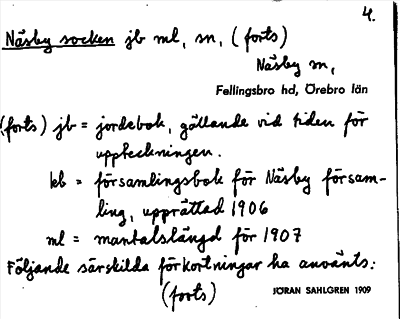 4.
Näsby socken jb ml, sn, (forts)
Näsby sn,
Fellingsbro hd, Örebro län
(forts) jb = jordebok, gällande vid tiden för
uppteckningen.
kb = församlingsbok för Näsby försam-
ling, upprättad 1906
ml = mantalslängd för 1907
Följande särskilda förkortningar ha använts:
(forts)
JÖRAN SAHLGREN 1909